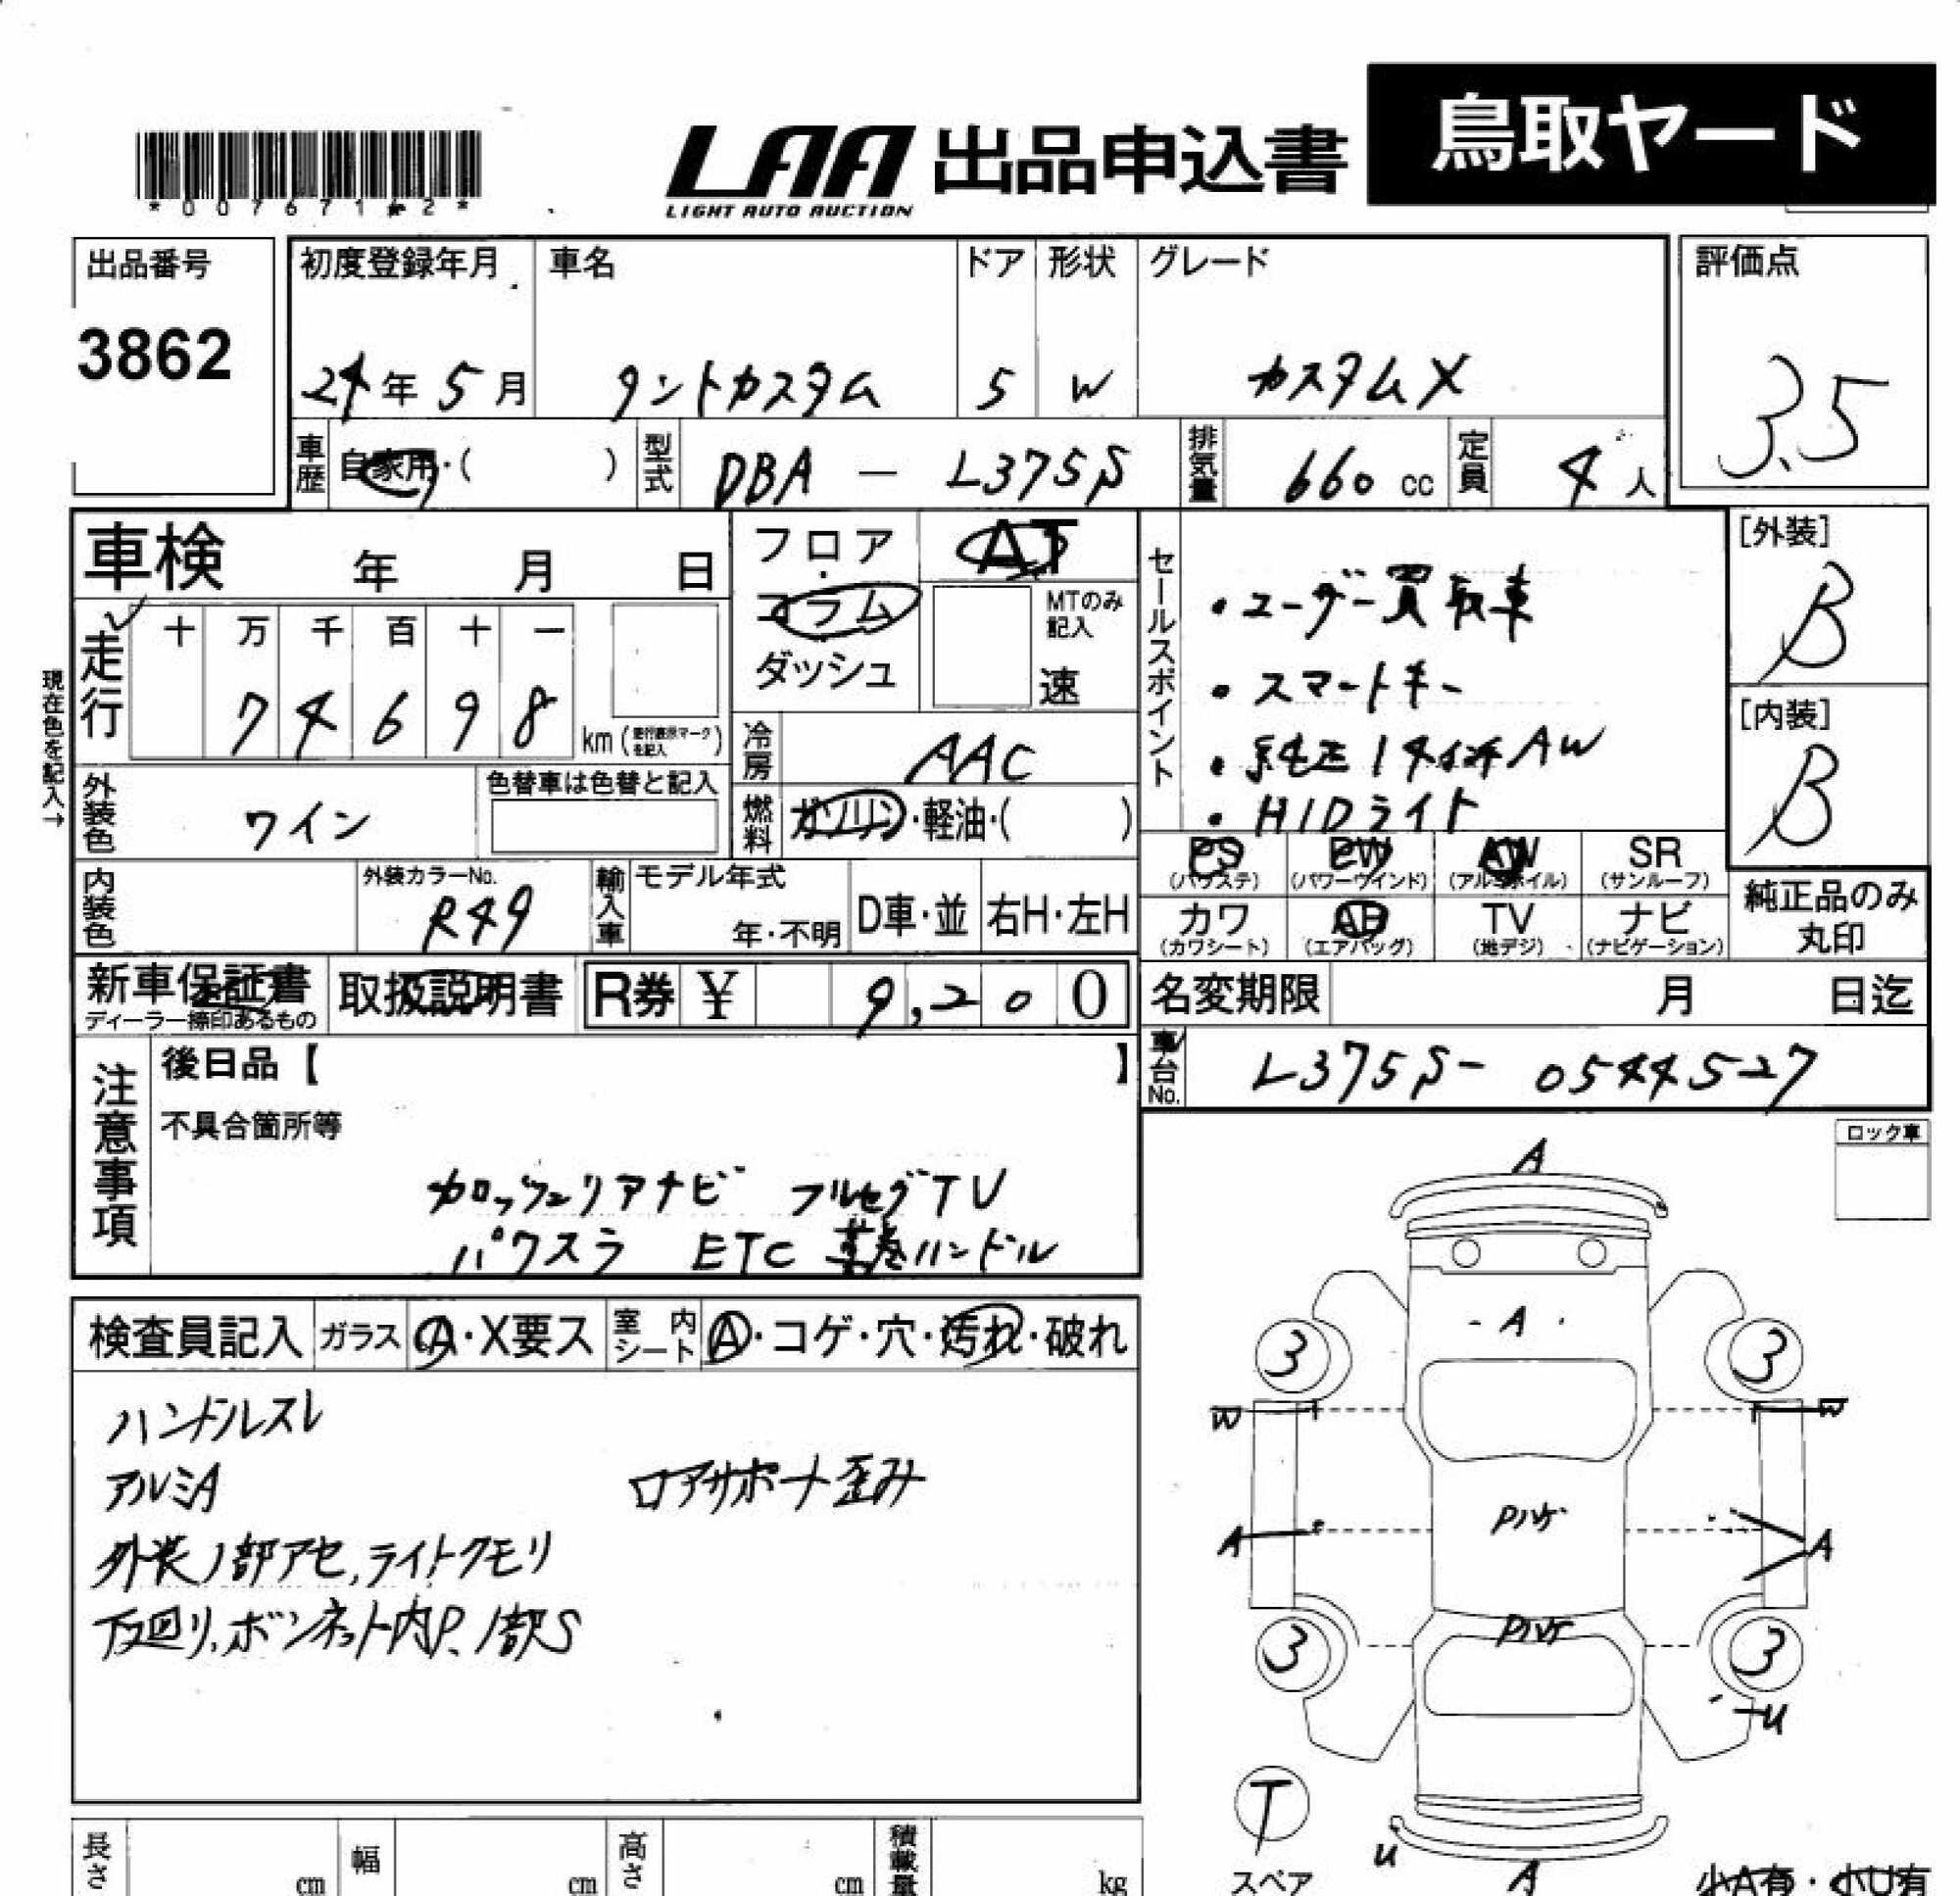 鳥取ヤード
LAA 出品申込書
LIGHT AUTO AUCTION
出品番号
3862
初度登録年月 車名 ドア 形状 グレード 評価点
24年5月 タントカスタム 5 W カスタムX 3.5
車歴 自家用・( ) 型式 DBA － L375S 排気量 660 cc 定員 4人
車検 年 月 日
フロア AT
コラム MTのみ記入
ダッシュ 速
走行 十 万 千 百 十 一
7 4 6 9 8 km
現在色を記入→
冷房 AAC
燃料 ガソリン・軽油・( )
外装色 ワイン 色替車は色替と記入
内装色 外装カラーNo. R49
輸入車 モデル年式 年・不明 D車・並 右H・左H
セールスポイント
・ユーザー買取車
・スマートキー
・純正14インチAW
・HIDライト
[外装]
B
[内装]
B
PS PW AW SR
(パワステ) (パワーウインド) (アルミホイル) (サンルーフ)
カワ AB TV ナビ
(カワシート) (エアバッグ) (地デジ) (ナビゲーション)
純正品のみ
丸印
新車保証書 取扱説明書 R券 ¥ 9,200
ディーラー捺印あるもの
名変期限 月 日迄
車台No. L375S- 0544527
注意事項
後日品【 】
不具合箇所等
カロッツェリアナビ フルセグTV
パワスラ ETC 革巻ハンドル
検査員記入 ガラス A・X要ス 室内シート A・コゲ・穴・汚れ・破れ
ハンドルスレ
アルミA ロアサポート歪み
外装1部アセ,ライトクモリ
下廻り,ボンネット内P、1部S
ロック車
A
A
3 3
W W
Pハゲ
A A
Pハゲ
3 3
U
T
スペア
U
A
小A有・小U有
長さ cm 幅 cm 高さ cm 積載量 kg